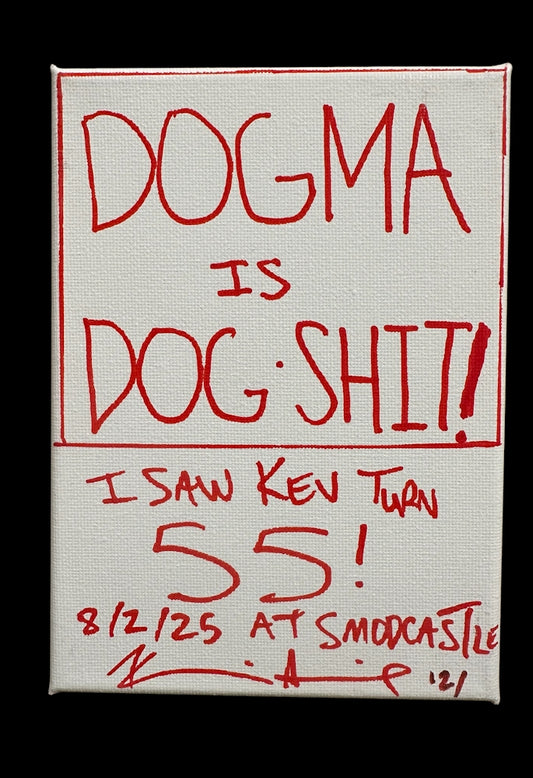 DOGMA
IS
DOG·SHIT!
I SAW KEV TURN
55!
8/2/25 AT SMODCASTLE